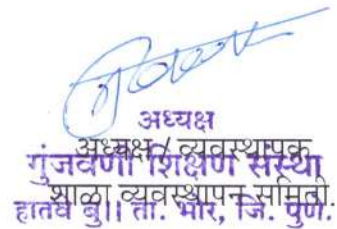 अध्यक्ष
अध्यक्ष / व्यवस्थापक
गुंजवणी शिक्षण संस्था
शाळा व्यवस्थापन समिती.
हातवे बु|| ता. भोर, जि. पुणे.